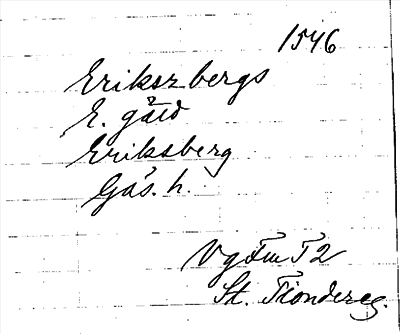 1546
Erikszbergs
E. gård
Eriksberg
Gäs. h.
VgFmT 2
St. Tiondereg.